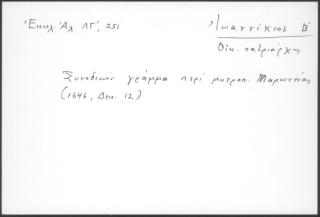 Ἐκκλ. Ἀλ. ΛΓ', 251
Ἰωαννίκιος Β'
Οἰκ. πατριάρχης
Συνοδικὸν γράμμα περὶ μητροπ. Μαρωνείας
(1646, Δεκ. 12)